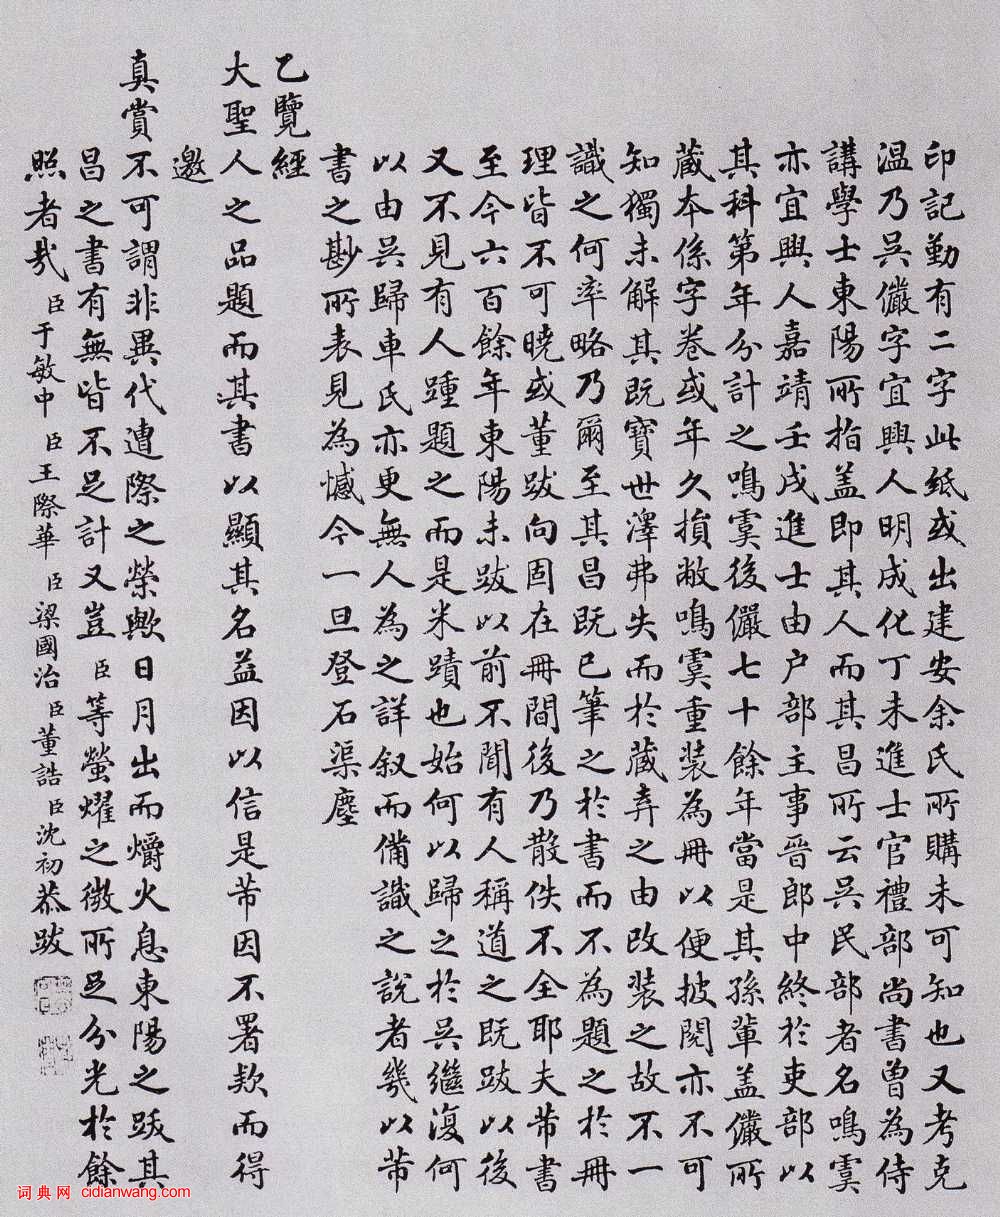 印記勤有二字此紙或出建安余氏所購未可知也又考克
温乃吳儼字宜興人明成化丁未進士官禮部尚書曾為侍
講學士東陽所指盖即其人而其昌所云吳民部者名鳴虞
亦宜興人嘉靖壬戌進士由户部主事晉郎中終於吏部以
其科第年分計之鳴虞後儼七十餘年當是其孫輩盖儼所
蔵本係字卷或年久損敝鳴虞重装為冊以便披閱亦不可
知獨未解其既寶世澤弗失而於蔵弆之由改装之故不一
識之何率略乃爾至其昌既已筆之於書而不為題之於冊
理皆不可曉或董跋向固在冊間後乃散佚不全耶夫芾書
至今六百餘年東陽未跋以前不聞有人稱道之既跋以後
又不見有人踵題之而是米蹟也始何以歸之於吳繼復何
以由吳歸車氏亦更無人為之詳叙而備識之說者幾以芾
書之尠所表見為憾今一旦登石渠塵
乙覽經
大聖人之品題而其書以顯其名益因以信是芾因不署款而得
邀
真賞不可謂非異代遭際之榮歟日月出而爝火息東陽之跋其
昌之書有無皆不足計又豈臣等螢燿之微所足分光於餘
照者哉臣于敏中臣王際華臣梁國治臣董誥臣沈初恭跋
词典网 cidianwang.com